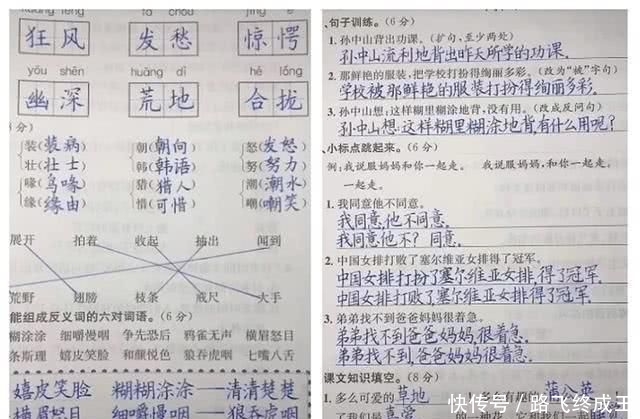 狂风 发愁 惊愕
yōu shēn huāng dì hé lǒng
幽深 荒地 合拢
装(装病) 朝(朝向) 怒(发怒)
壮(壮士) 韩(韩语) 努(努力)
喙(鸟喙) 猎(猎人) 潮(潮水)
缘(缘由) 惜(可惜) 嘲(嘲笑)
展开 拍着 收起 抽出 闻到
荒野 翅膀 枝条 戒尺 大手
能组成反义词的六对词语。
糊涂涂 细嚼慢咽 争先恐后 鸦雀无声 横眉怒目
条斯理 嬉皮笑脸 和颜悦色 狼吞虎咽 七嘴八舌
嬉皮笑脸 糊糊涂涂——清清楚楚
横眉怒目 细嚼慢咽——狼吞虎咽
、句子训练。(6分)
1. 孙中山背出功课。(扩句,至少两处)
孙中山流利地背出昨天所学的功课.
2. 那鲜艳的服装,把学校打扮得绚丽多彩。(改为“被”字句)
学校被那鲜艳的服装打扮得绚丽多彩.
3. 孙中山想:这样糊里糊涂地背,没有用。(改成反问句)
孙中山想:这样糊里糊涂地背有什么用呢?
小标点跳起来。(6分)
例:我说服妈妈和你一起走。 我说服妈妈,和你一起走。
一起走。
1. 我同意他不同意。
我同意,他不同意.
我同意他不?同意.
2. 中国女排打败了塞尔维亚女排得了冠军。
中国女排打扮了塞尔维亚女排,得了冠军.
中国女排打败了塞尔维亚,女排得了冠军.
3. 弟弟找不到爸爸妈妈很着急。
弟弟找不到爸爸妈妈,很着急.
弟弟找不到,爸爸妈妈很着急.
课文知识填空。(8分)
1. 多么可爱的草地 蒲公英
快传号/路飞终成王